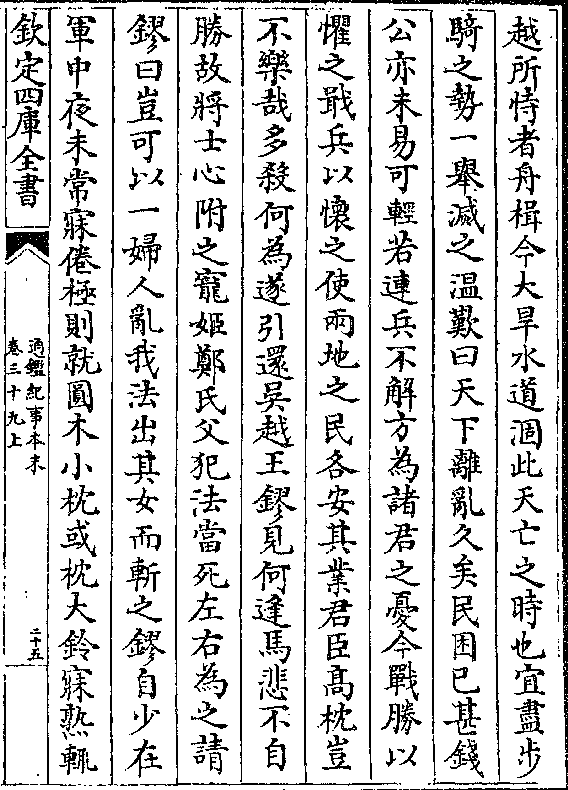 越所恃者舟楫今大旱水道涸此天亡之時也宜盡步
騎之勢一舉滅之温歎曰天下離亂久矣民困已甚錢
公亦未易可輕若連兵不解方為諸君之憂今戰勝以
懼之戢兵以懷之使兩地之民各安其業君臣髙枕豈
不樂哉多殺何為遂引還吳越王鏐見何逢馬悲不自
勝故將士心附之寵姬鄭氏父犯法當死左右為之請
鏐曰豈可以一婦人亂我法出其女而斬之鏐自少在
軍中夜未常寐倦極則就圓木小枕或枕大鈴寐熟輒
欽定四庫全書
通鑑紀事本末
卷三十九上
二十五